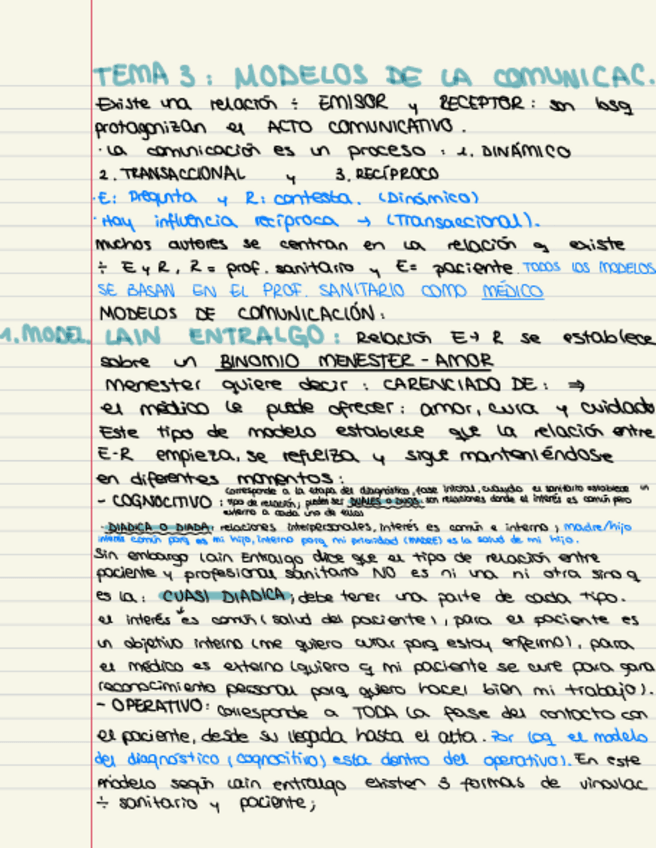 TEMA 3: MODELOS DE LA COMUNICAC.
Existe una relación ÷ EMISOR y RECEPTOR: son losq
protagonizan el ACTO COMUNICATIVO.
·La comunicación es un proceso: 1. DINÁMICO
2. TRANSACCIONAL y 3. RECÍPROCO
·E: Pregunta y R: contesta. (Dinámico)
·Hay influencia recíproca → (Transaccional).
Muchos autores se centran en la relación q existe
÷ E y R, R = prof. sanitario y E= paciente. TODOS LOS MODELOS
SE BASAN EN EL PROF. SANITARIO COMO MÉDICO
MODELOS DE COMUNICACIÓN:
1. MODEL. LAIN ENTRALGO: Relación E→R se establece
sobre un BINOMIO MENESTER-AMOR
Menester quiere decir: CARENCIADO DE: ⇒
el médico le puede ofrecer: amor, cura y cuidado
Este tipo de modelo establece que la relación entre
E-R empieza, se refuerza y sigue manteniéndose
en diferentes momentos:
- COGNOCITIVO: corresponde a la etapa del diagnóstico, fase inicial, cuando el sanitario establece un
tipo de relación, pueden ser DUALES O DUOS: son relaciones donde el interés es común pero
externo a cada uno de ellos
-DIADICA O DIADA: relaciones interpersonales, interés es común e interno; madre/hijo
interés común porq es mi hijo, interno porq mi prioridad (MADRE) es la salud de mi hijo.
Sin embargo Lain Entralgo dice que el tipo de relación entre
paciente y profesional sanitario NO es ni una ni otra sino q
es la: CUASI DIADICA; debe tener una parte de cada tipo.
el interés es común (salud del paciente), para el paciente es
un objetivo interno (me quiero curar porq estoy enfermo), para
el médico es externo (quiero q mi paciente se cure para gana
reconocimiento personal porq quiero hacer bien mi trabajo).
- OPERATIVO: corresponde a TODA la fase del contacto con
el paciente, desde su llegada hasta el alta. Por loq el modelo
del diagnóstico (cognocitivo) esta dentro del operativo). En este
modelo según Lain entralgo existen 3 formas de vincular
÷ sanitario y paciente;